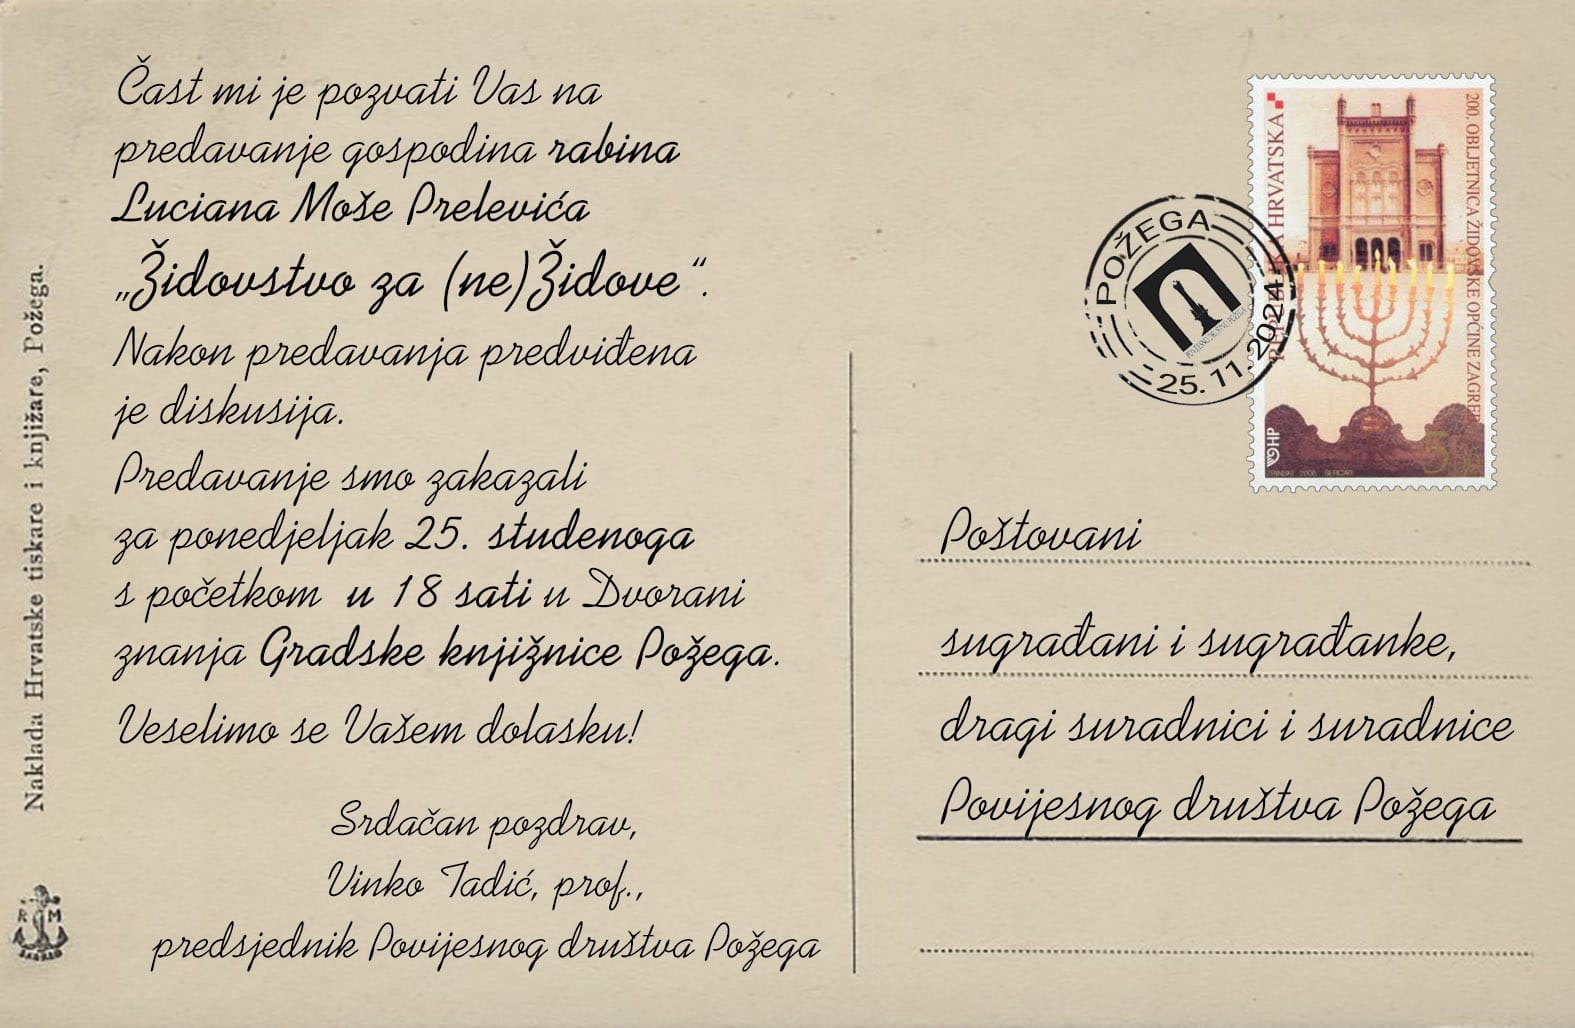 Čast mi je pozvati Vas na
predavanje gospodina rabina
Luciana Moše Prelevića
„Židovstvo za (ne)Židove“.
Nakon predavanja predviđena
je diskusija.
Predavanje smo zakazali
za ponedjeljak 25. studenoga
s početkom u 18 sati u Dvorani
znanja Gradske knjižnice Požega.
Veselimo se Vašem dolasku!
Srdačan pozdrav,
Vinko Tadić, prof.,
predsjednik Povijesnog društva Požega
Naklada Hrvatske tiskare i knjižare, Požega.
R M
ZAGREB
POŽEGA
25.11.2024.
POVIJESNO DRUŠTVO POŽEGA
HRVATSKA
200. OBLJETNICA ŽIDOVSKE OPĆINE ZAGREB
HP
5
ZRINSKI 2006
Poštovani
sugrađani i sugrađanke,
dragi suradnici i suradnice
Povijesnog društva Požega